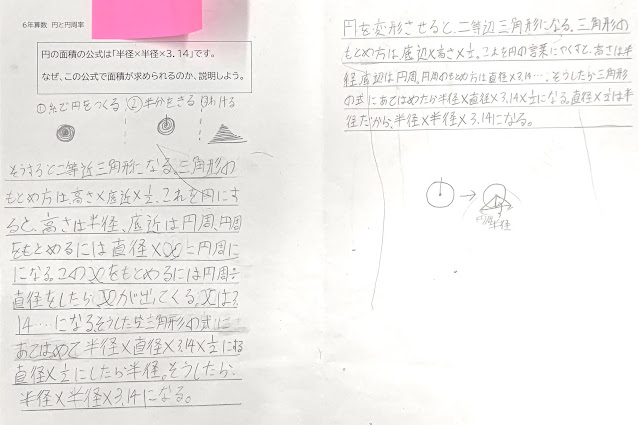 6年算数 円と円周率
円の面積の公式は「半径×半径×3.14」です。
なぜ、この公式で面積が求められるのか、説明しよう。
①糸で円をつくる ②半分をきる ③わける
そうすると二等辺三角形になる。三角形の
もとめ方は、高さ×底辺×1/2、これを円にす
ると、高さは半径、底辺は円周、円周
をもとめるには直径×𝒳=円周に
になる。この𝒳をもとめるには円周÷
直径をしたら、𝒳が出てくる。𝒳は3.
14…になる。そうしたら三角形の式に
あてはめて半径×直径×3.14×1/2になる
直径×1/2にしたら半径。そうしたら、
半径×半径×3.14になる。
円を変形させると、二等辺三角形になる。三角形の
もとめ方は、底辺×高さ×1/2。これを円の言葉になおすと、高さは半
径、底辺は円周、円周のもとめ方は直径×3.14…、そうしたら三角形
の式にあてはめたら半径×直径×3.14×1/2になる。直径×1/2は半
径だから、半径×半径×3.14になる。
円周
半径